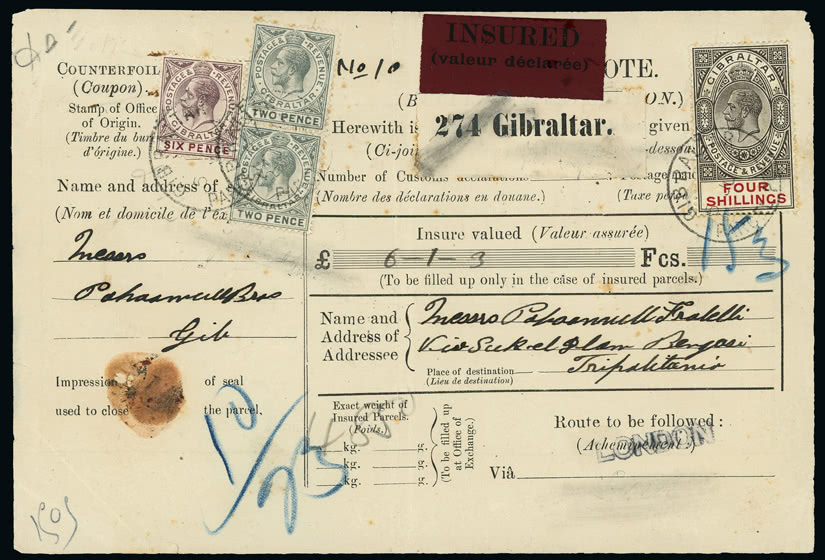 COUNTERFOIL
(Coupon)
Stamp of Office
of Origin.
(Timbre du bur
d'origine.)
POSTAGE & REVENUE
GIBRALTAR
SIX PENCE
POSTAGE & REVENUE
GIBRALTAR
TWO PENCE
POSTAGE & REVENUE
GIBRALTAR
TWO PENCE
Name and address of
(Nom et domicile de l'ex
Messrs
Pohoomull Bros
Gib
Impression of seal
used to close the parcel.
No 10
INSURED
(valeur déclarée)
OTE.
ON.)
Herewith is
274 Gibraltar.
given
(Ci-join
dessous
Number of Customs declarations
(Nombre des déclarations en douane.)
Postage paid
(Taxe perçue
GIBRALTAR
POSTAGE & REVENUE
FOUR
SHILLINGS
Insure valued (Valeur assurée)
£ 6-1-3 Fcs.
(To be filled up only in the case of insured parcels.)
Name and
Address of
Addressee
Messrs Pohoomull Fratelli
Bengasi
Tripolitania
Place of destination
(Lieu de destination)
Exact weight of
Insured Parcels.
(Poids.)
kg.
kg.
kg.
(To be filled up
at Office of
Exchange.)
Route to be followed:
(Acheminement.)
LONDON
Viâ
10/23